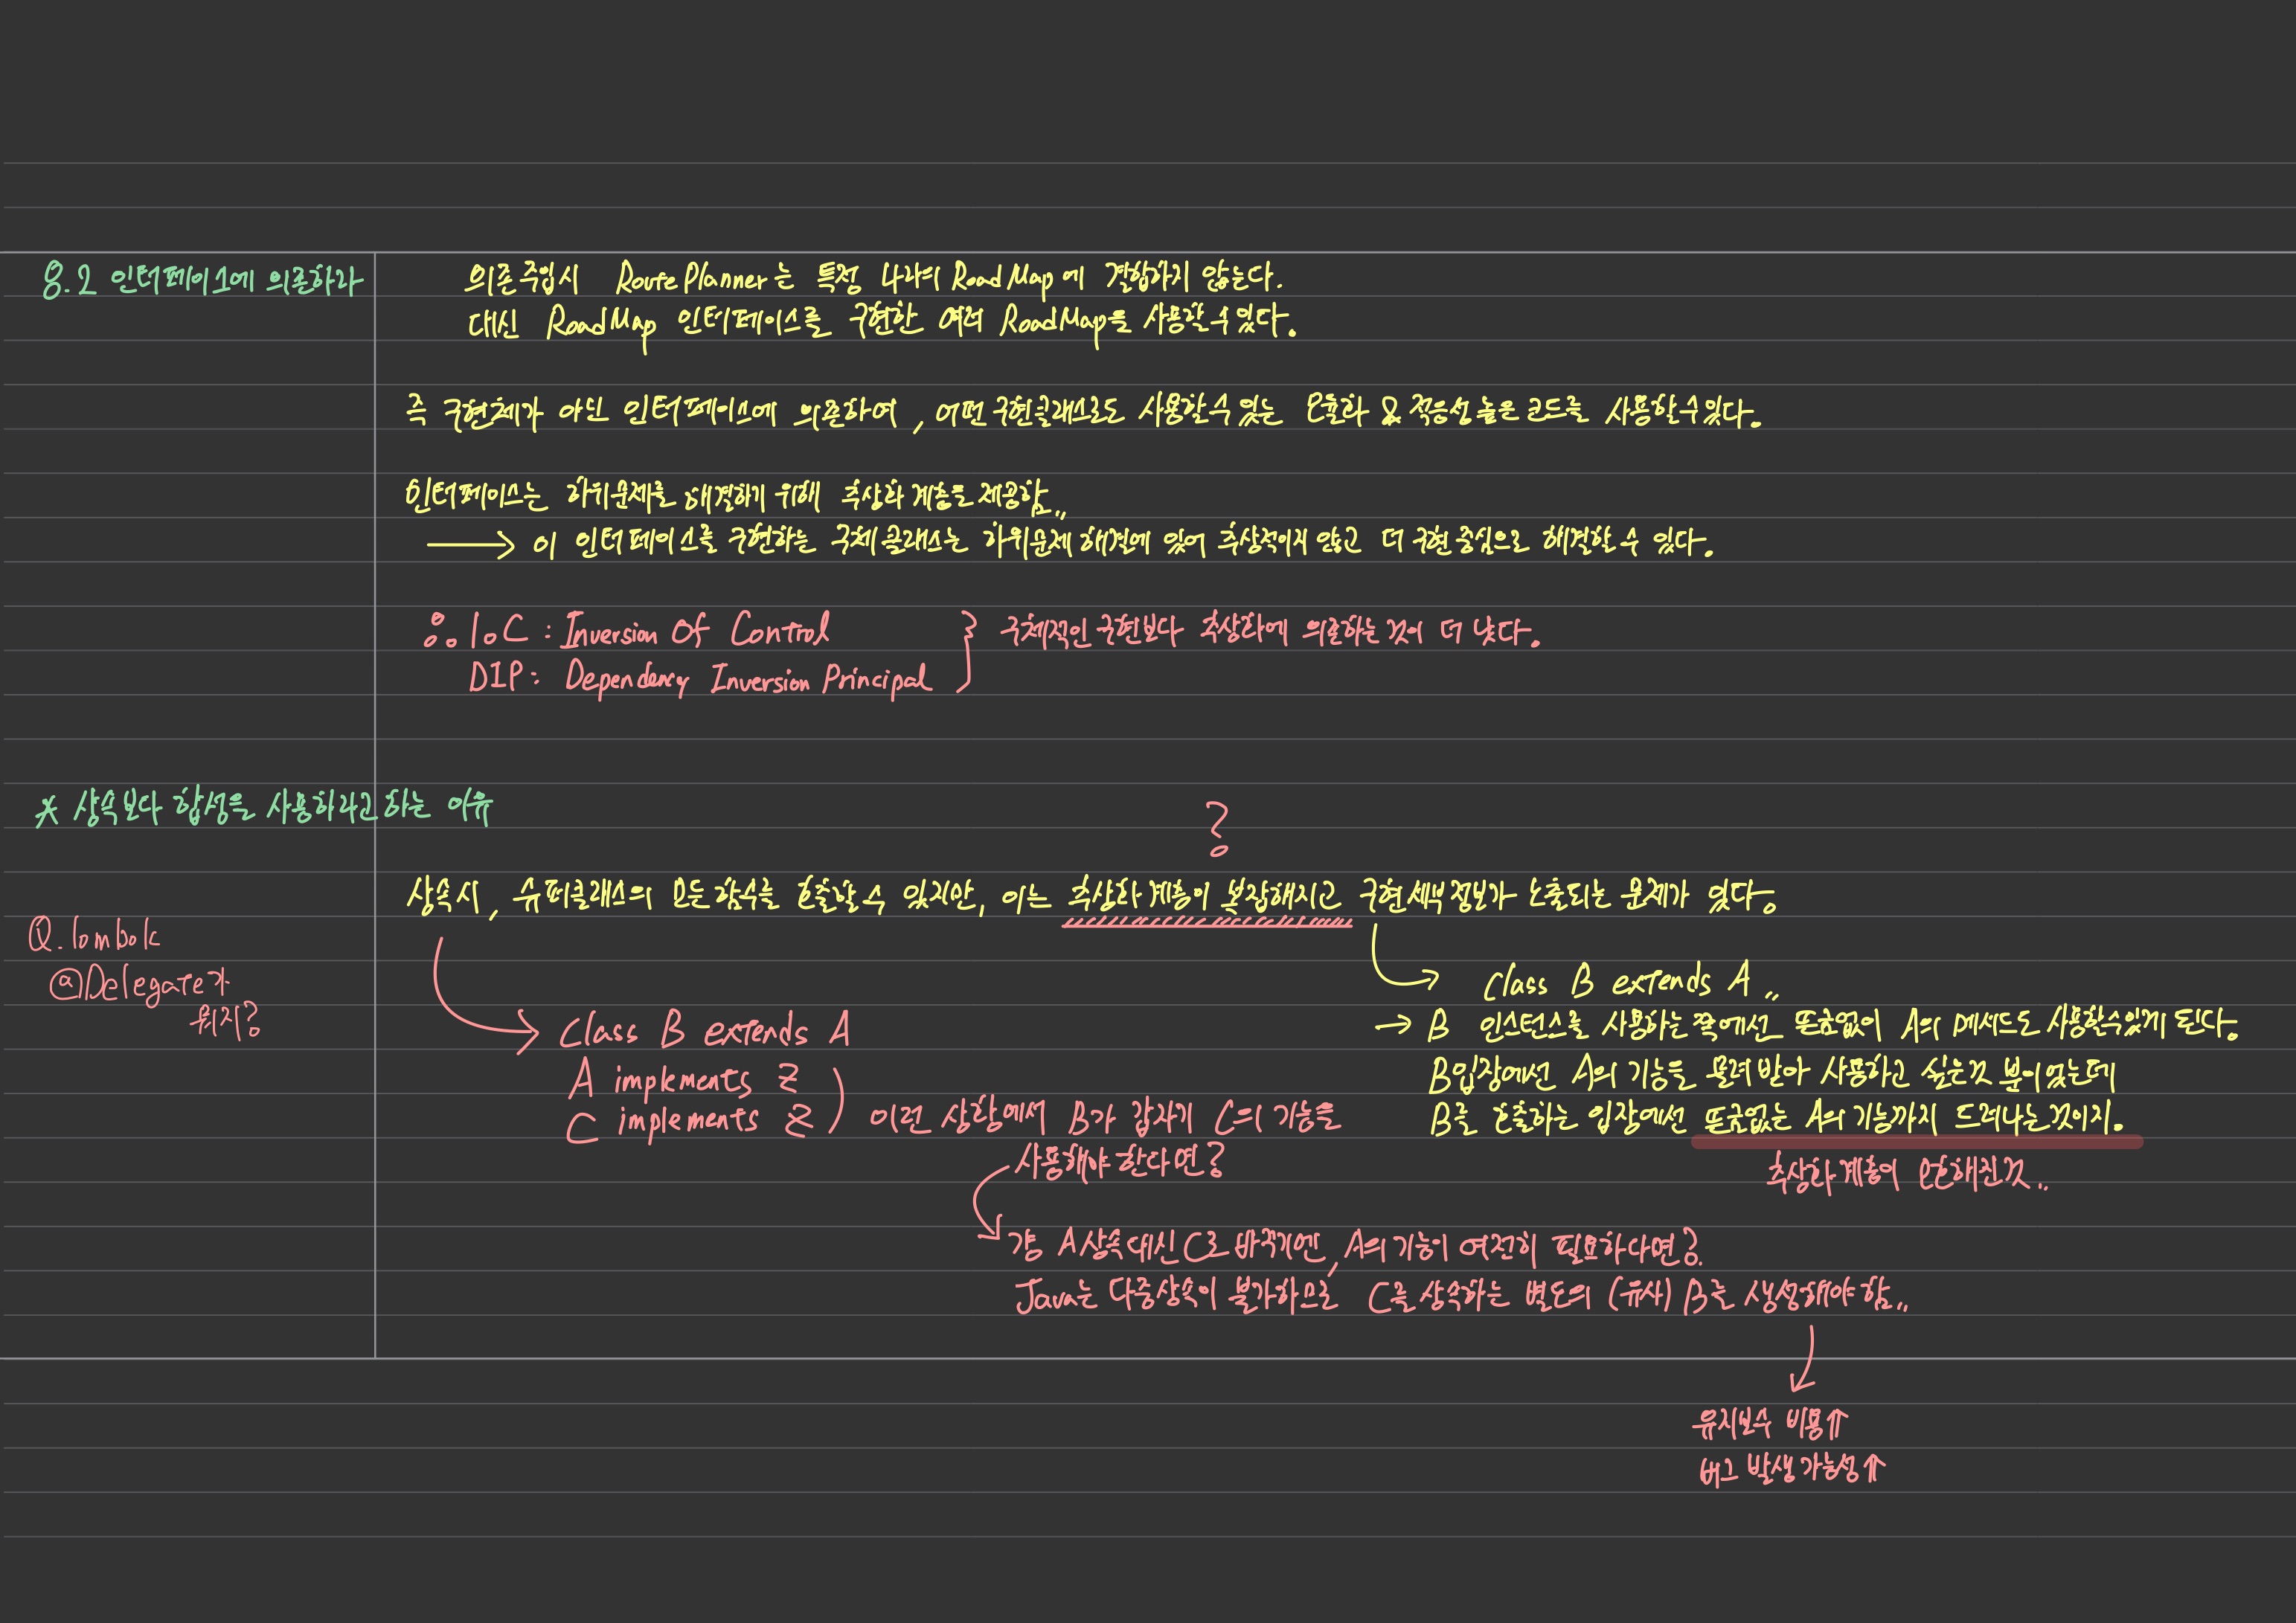 8.2 인터페이스에 의존하라
의존주입시 Route Planner는 특정 나라의 Road Map에 결합하지 않는다.
대신 RoadMap 인터페이스를 구현한 여러 RoadMap을 사용할 수 있다.
즉 구현체가 아닌 인터페이스에 의존하여, 어떤 구현클래스로도 사용할 수 있는 모듈화 & 적응성 높은 코드를 사용할 수 있다.
인터페이스는 하위문제를 해결하기 위해 추상화 계층을 제공함..
→ 이 인터페이스를 구현하는 구체 클래스는 하위문제 해결에 있어 추상적이지 않고 더 구현 중심으로 해결할 수 있다.
%. IoC : Inversion Of Control
DIP : Dependency Inversion Principal
} 구체적인 구현보다 추상화에 의존하는 것이 더 낫다.
* 상속보다 합성을 사용하라고 하는 이유
?
상속시, 슈퍼클래스의 모든 함수를 호출할 수 있지만, 이는 추상화 계층이 복잡해지고 구현세부정보가 노출되는 문제가 있다.
Q. lombok
@Delegate가
뭐지?
Class B extends A
A implments Z
C implments Z
) 이런 상황에서 B가 갑자기 C의 기능을
사용해야 한다면?
걍 A상속 대신 C로 바꾸기엔, A의 기능이 여전히 필요하다면?
Java는 다중상속이 불가하므로 C를 상속하는 별도의 (유사) B를 생성해야 함..
유지보수 비용↑
버그 발생 가능성↑
Class B extends A ..
→ B 인스턴스를 사용하는 쪽에선 뜬금없이 A의 메서드도 사용할수있게 된다.
B입장에선 A의 기능을 물려 받아 사용하고 싶은것 뿐이었는데
B를 호출하는 입장에선 뜬금없는 A의 기능까지 드러나는것이지.
추상화 계층이 모호해진것..